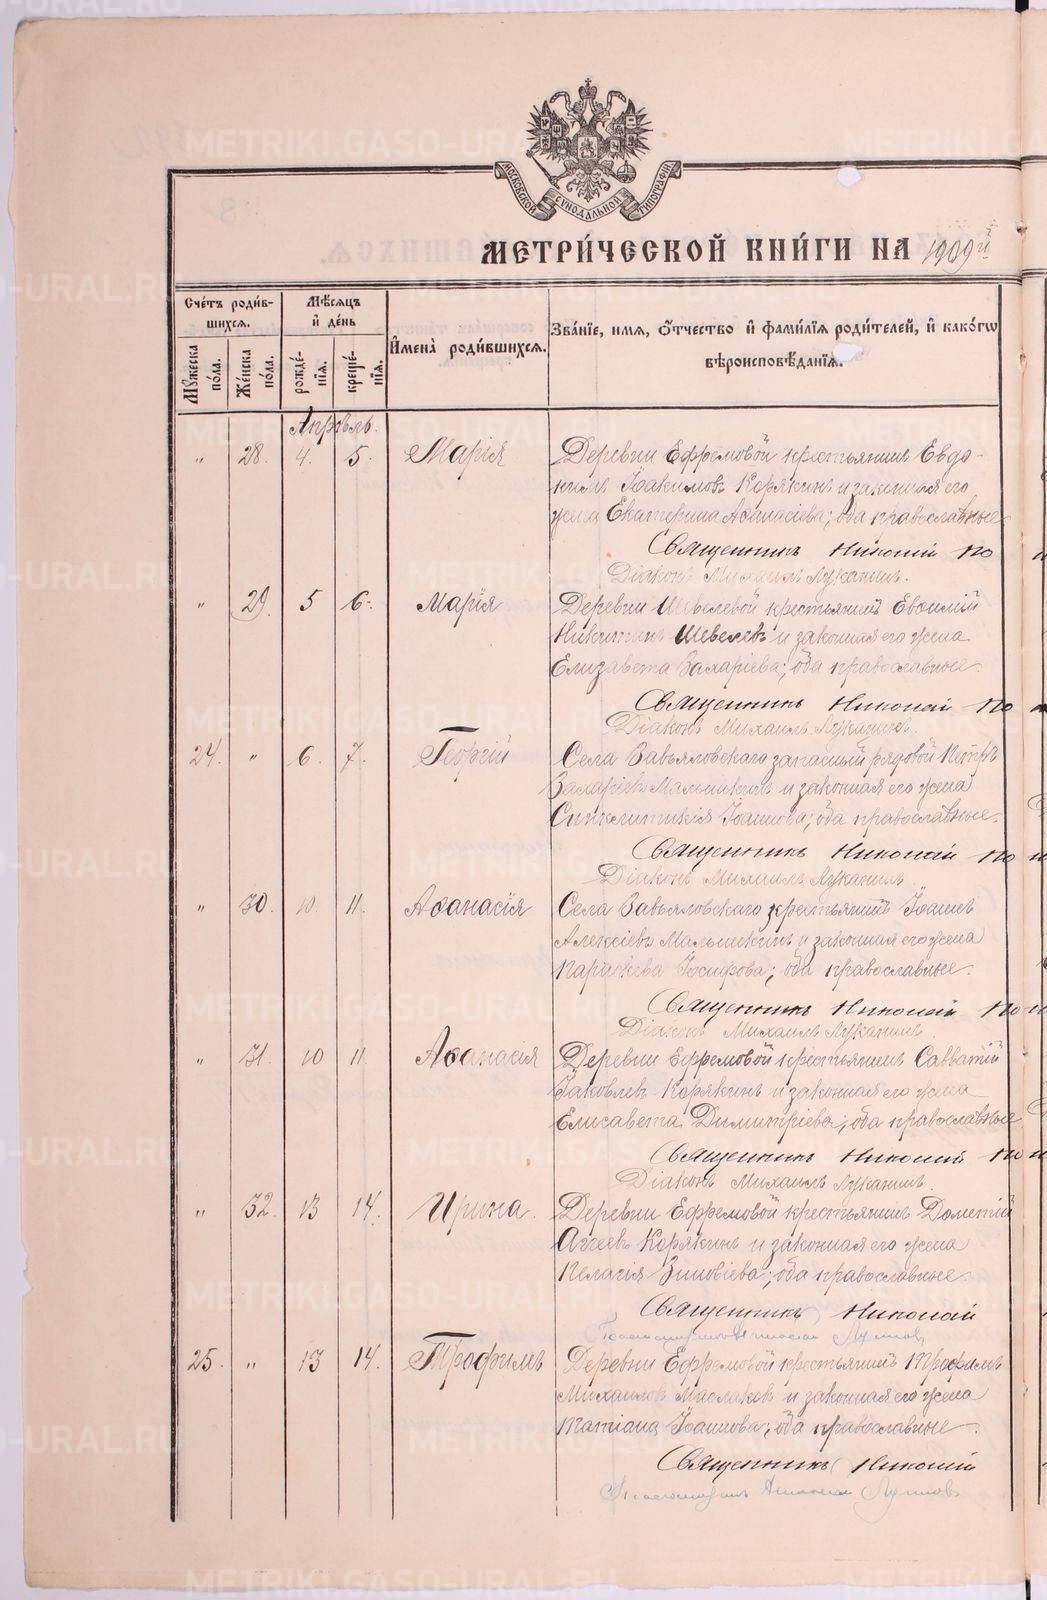 METRIKI.GASO-URAL.RU
МОСКОВСКОЙ СѴНОДАЛЬНОЙ ТИПОГРАФІИ
МЕТРИ́ЧЕСКОЙ КНИ́ГИ НА 1909й
Сче́тъ роди́в-
шихся.
Мѣ́сяцъ
и де́нь
Мꙋ́жеска по́ла.
Же́нска по́ла.
рожде́-
нїя.
креще́-
нїя.
И҆мена̀ роди́вшихся.
Зва́нїе, имя, ѻ҆́тчество и҆ фами́лїя роди́телей, и҆ како́гѡ
вѣроисповѣ́данїя.
Апрѣль.
" 28. 4. 5. Марія
Деревни Ефремовой крестьянинъ Евдо-
кимъ Іоакимовъ Корякинъ и законная его
жена Екатерина Аѳанасіева; оба православные
Священникъ Николай По
Діаконъ Михаилъ Лукания.
" 29. 5 6. Марія
Деревни Шевелевой крестьянинъ Евѳимій
Никитинъ Шевелевъ и законная его жена
Елизавета Захаріева; оба православные.
Священникъ Николай По
Діаконъ Михаилъ
24. " 6. 7. Георгій
Села Завьяловскаго запасный рядовой Петръ
Захаріевъ Малышкинъ и законная его жена
Синклитикія Іоаннова; оба православные.
Священникъ Николай По
Діаконъ Михаилъ
" 30. 10. 11. Аѳанасія
Села Завьяловскаго крестьянинъ Іоаннъ
Алексіевъ Малышкинъ и законная его жена
Параскева Іосифова; оба православные.
Священникъ Николай По
Діаконъ Михаилъ
" 31. 10 11. Аѳанасія
Деревни Ефремовой крестьянинъ Савватій
Іаковлевъ Корякинъ и законная его жена
Елисавета Димитріева; оба православные
Священникъ Николай По
Діаконъ Михаилъ
" 32. 13 14. Ирина.
Деревни Ефремовой крестьянинъ Дометій
Аггеевъ Корякинъ и законная его жена
Пелагія Зиновіева; оба православные.
Священникъ Николай
25. " 13 14. Трофимъ
Деревни Ефремовой крестьянинъ Трофимъ
Михаиловъ Маслаковъ и законная его жена
Татіана Іоаннова; оба православные.
Священникъ Николай